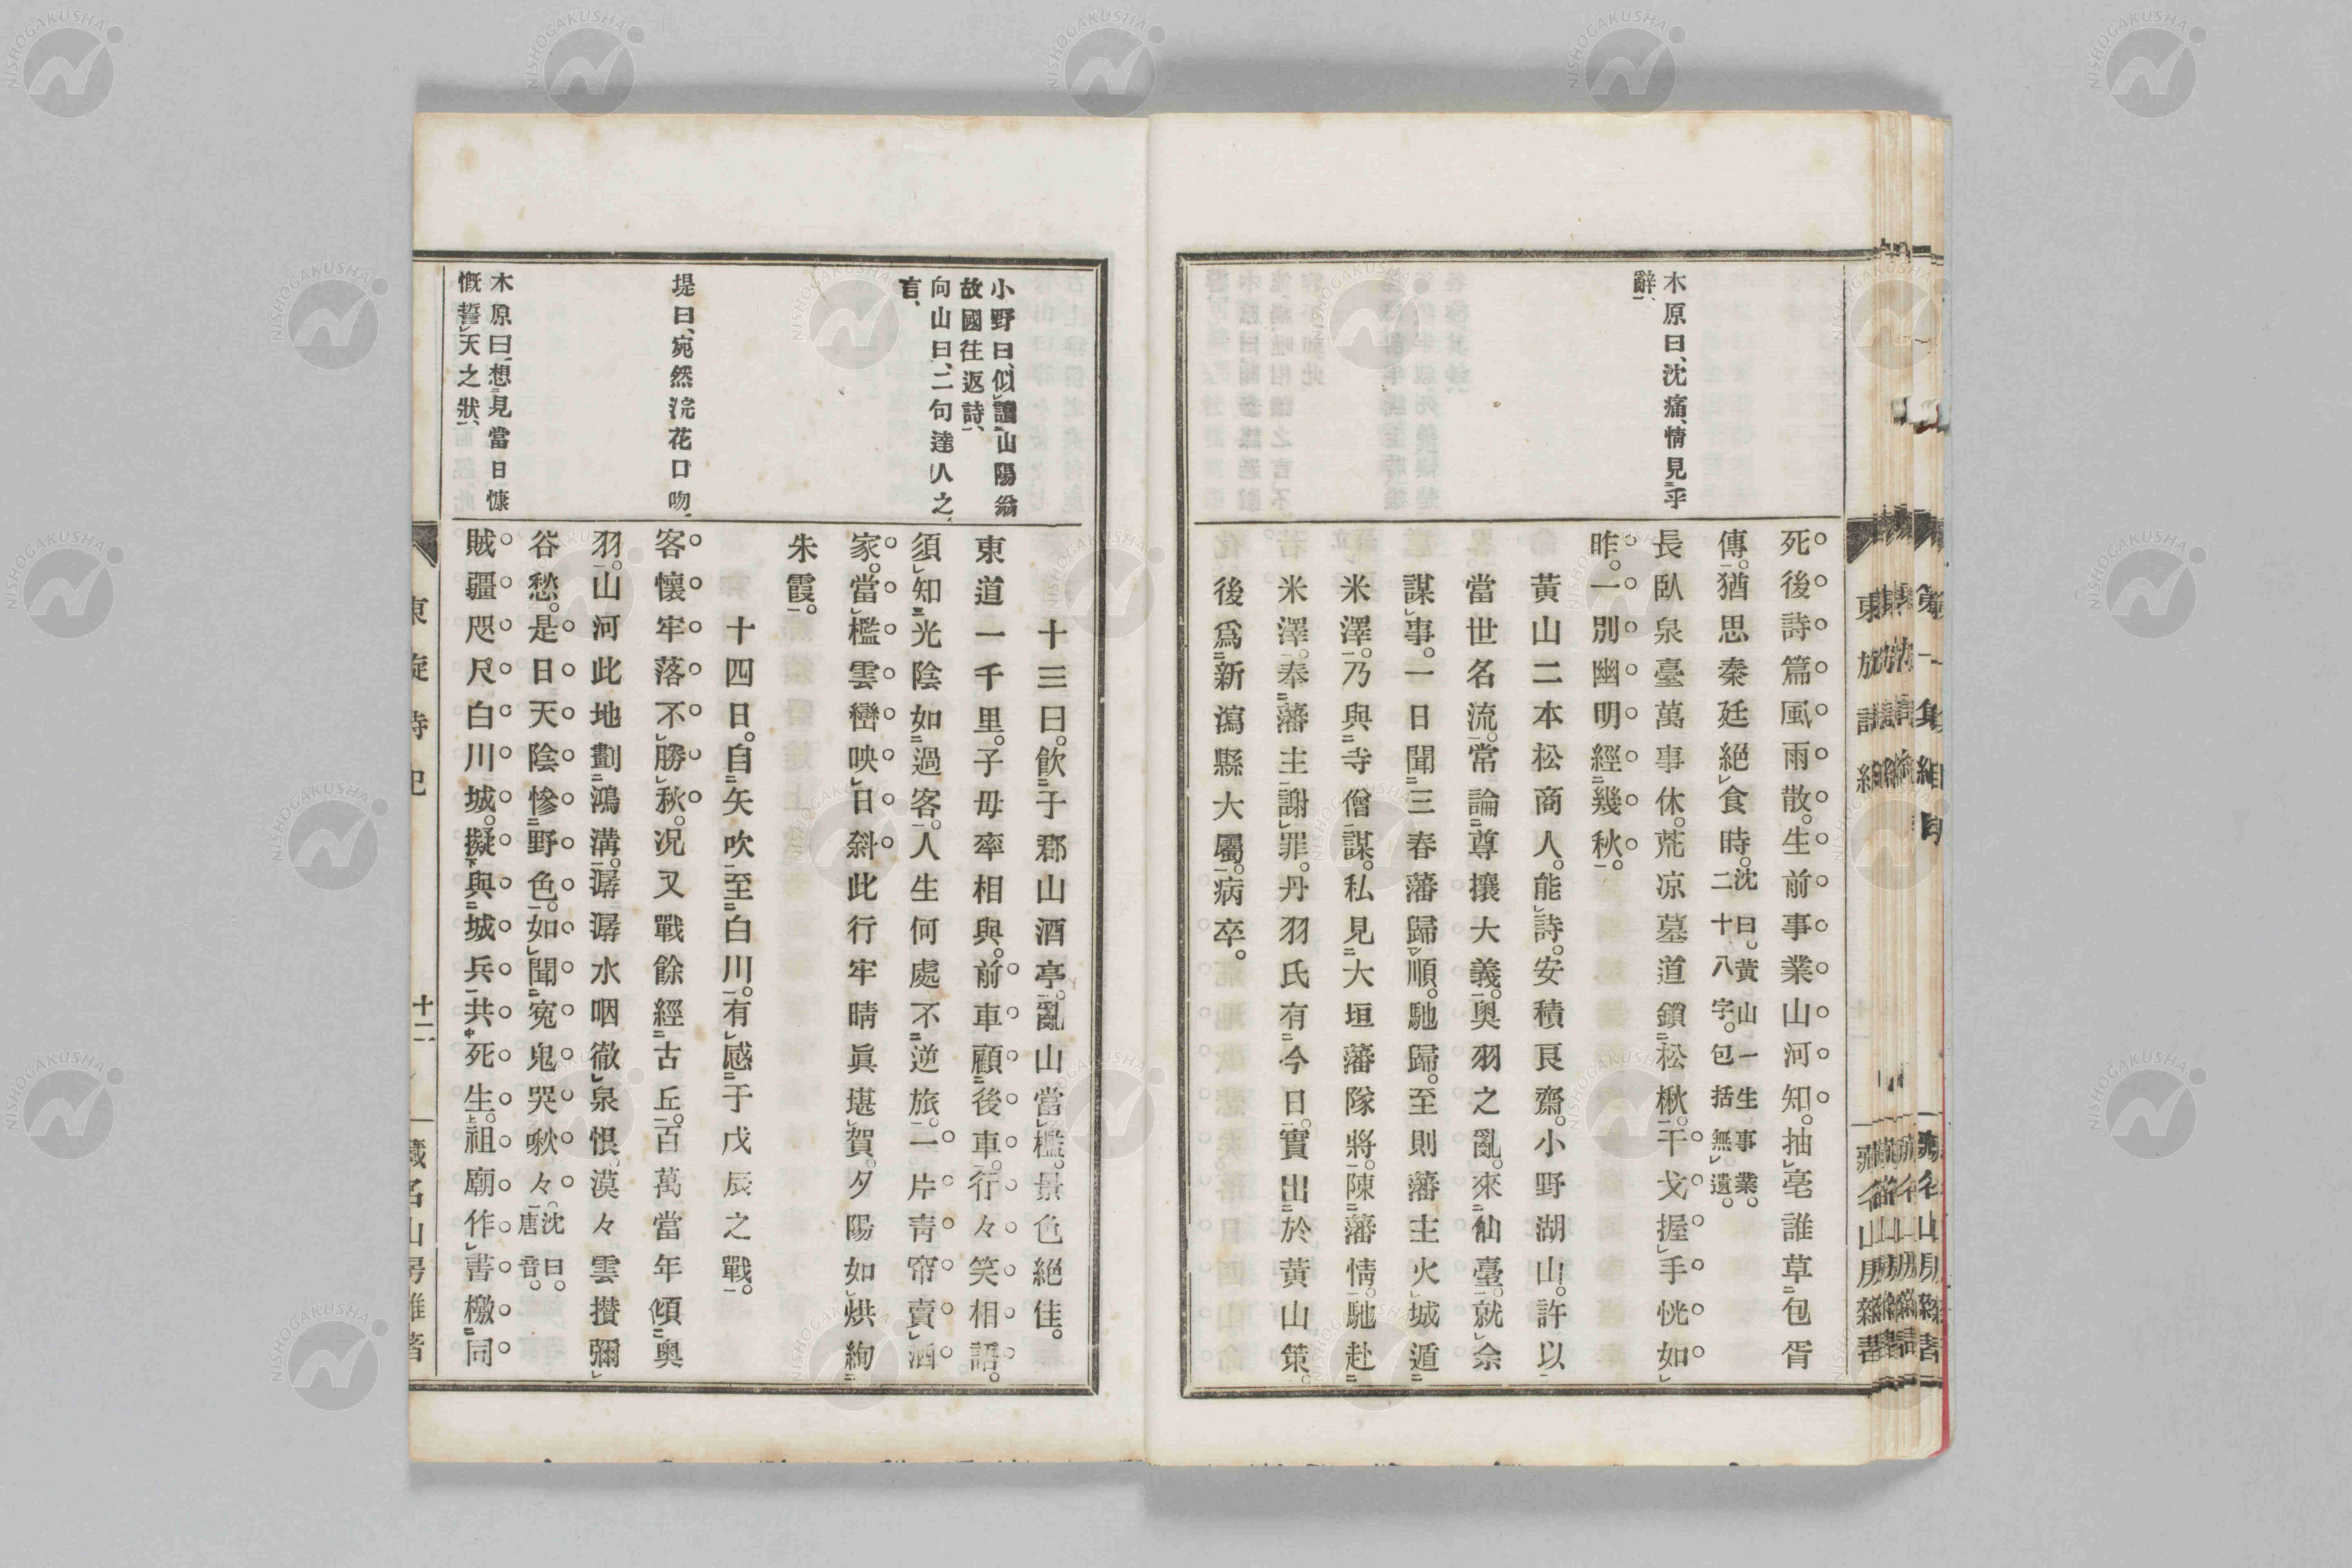 木原曰、沈痛、情見乎
辭、
死後詩篇風雨散。生前事業山河知。抽毫誰草包胥
傳。猶思秦廷絕食時。沈曰。黃山一生事業。二十八字。包括無遺。
長臥泉臺萬事休。荒凉墓道鎖松楸。干戈握手恍如
昨。一別幽明經幾秋。
黃山二本松商人。能詩。安積艮齋。小野湖山。許以
當世名流。常論尊攘大義。奧羽之亂。來仙臺。就余
謀事。一日聞三春藩歸順。馳歸。至則藩主火城遁
米澤。乃與寺僧謀。私見大垣藩隊將。陳藩情。馳赴
米澤。奉藩主謝罪。丹羽氏有今日。實出於黃山策。
後爲新瀉縣大屬。病卒。
小野曰、似讀山陽翁
故國往返詩、
向山曰、二句達人之
言、
堤曰、宛然浣花口吻、
木原曰、想見當日慷
慨誓天之狀、
十三日。飮于郡山酒亭。亂山當檻。景色絕佳。
東道一千里。子母率相與。前車顧後車。行々笑相語。
須知光陰如過客。人生何處不逆旅。一片靑帘賣酒
家。當檻雲巒映日斜。此行牢晴眞堪賀。夕陽如烘絢
朱霞。
十四日。自矢吹至白川。有感于戊辰之戰。
客懷牢落不勝秋。况又戰餘經古丘。百萬當年傾奧
羽。山河此地劃鴻溝。潺潺水咽徹泉恨。漠々雲攅彌
谷愁。是日天陰慘野色。如聞寃鬼哭啾々。沈曰。唐音。
賊疆咫尺白川城。擬與城兵共死生。祖廟作書檄同
東旋詩紀
十二
藏名山房雜著